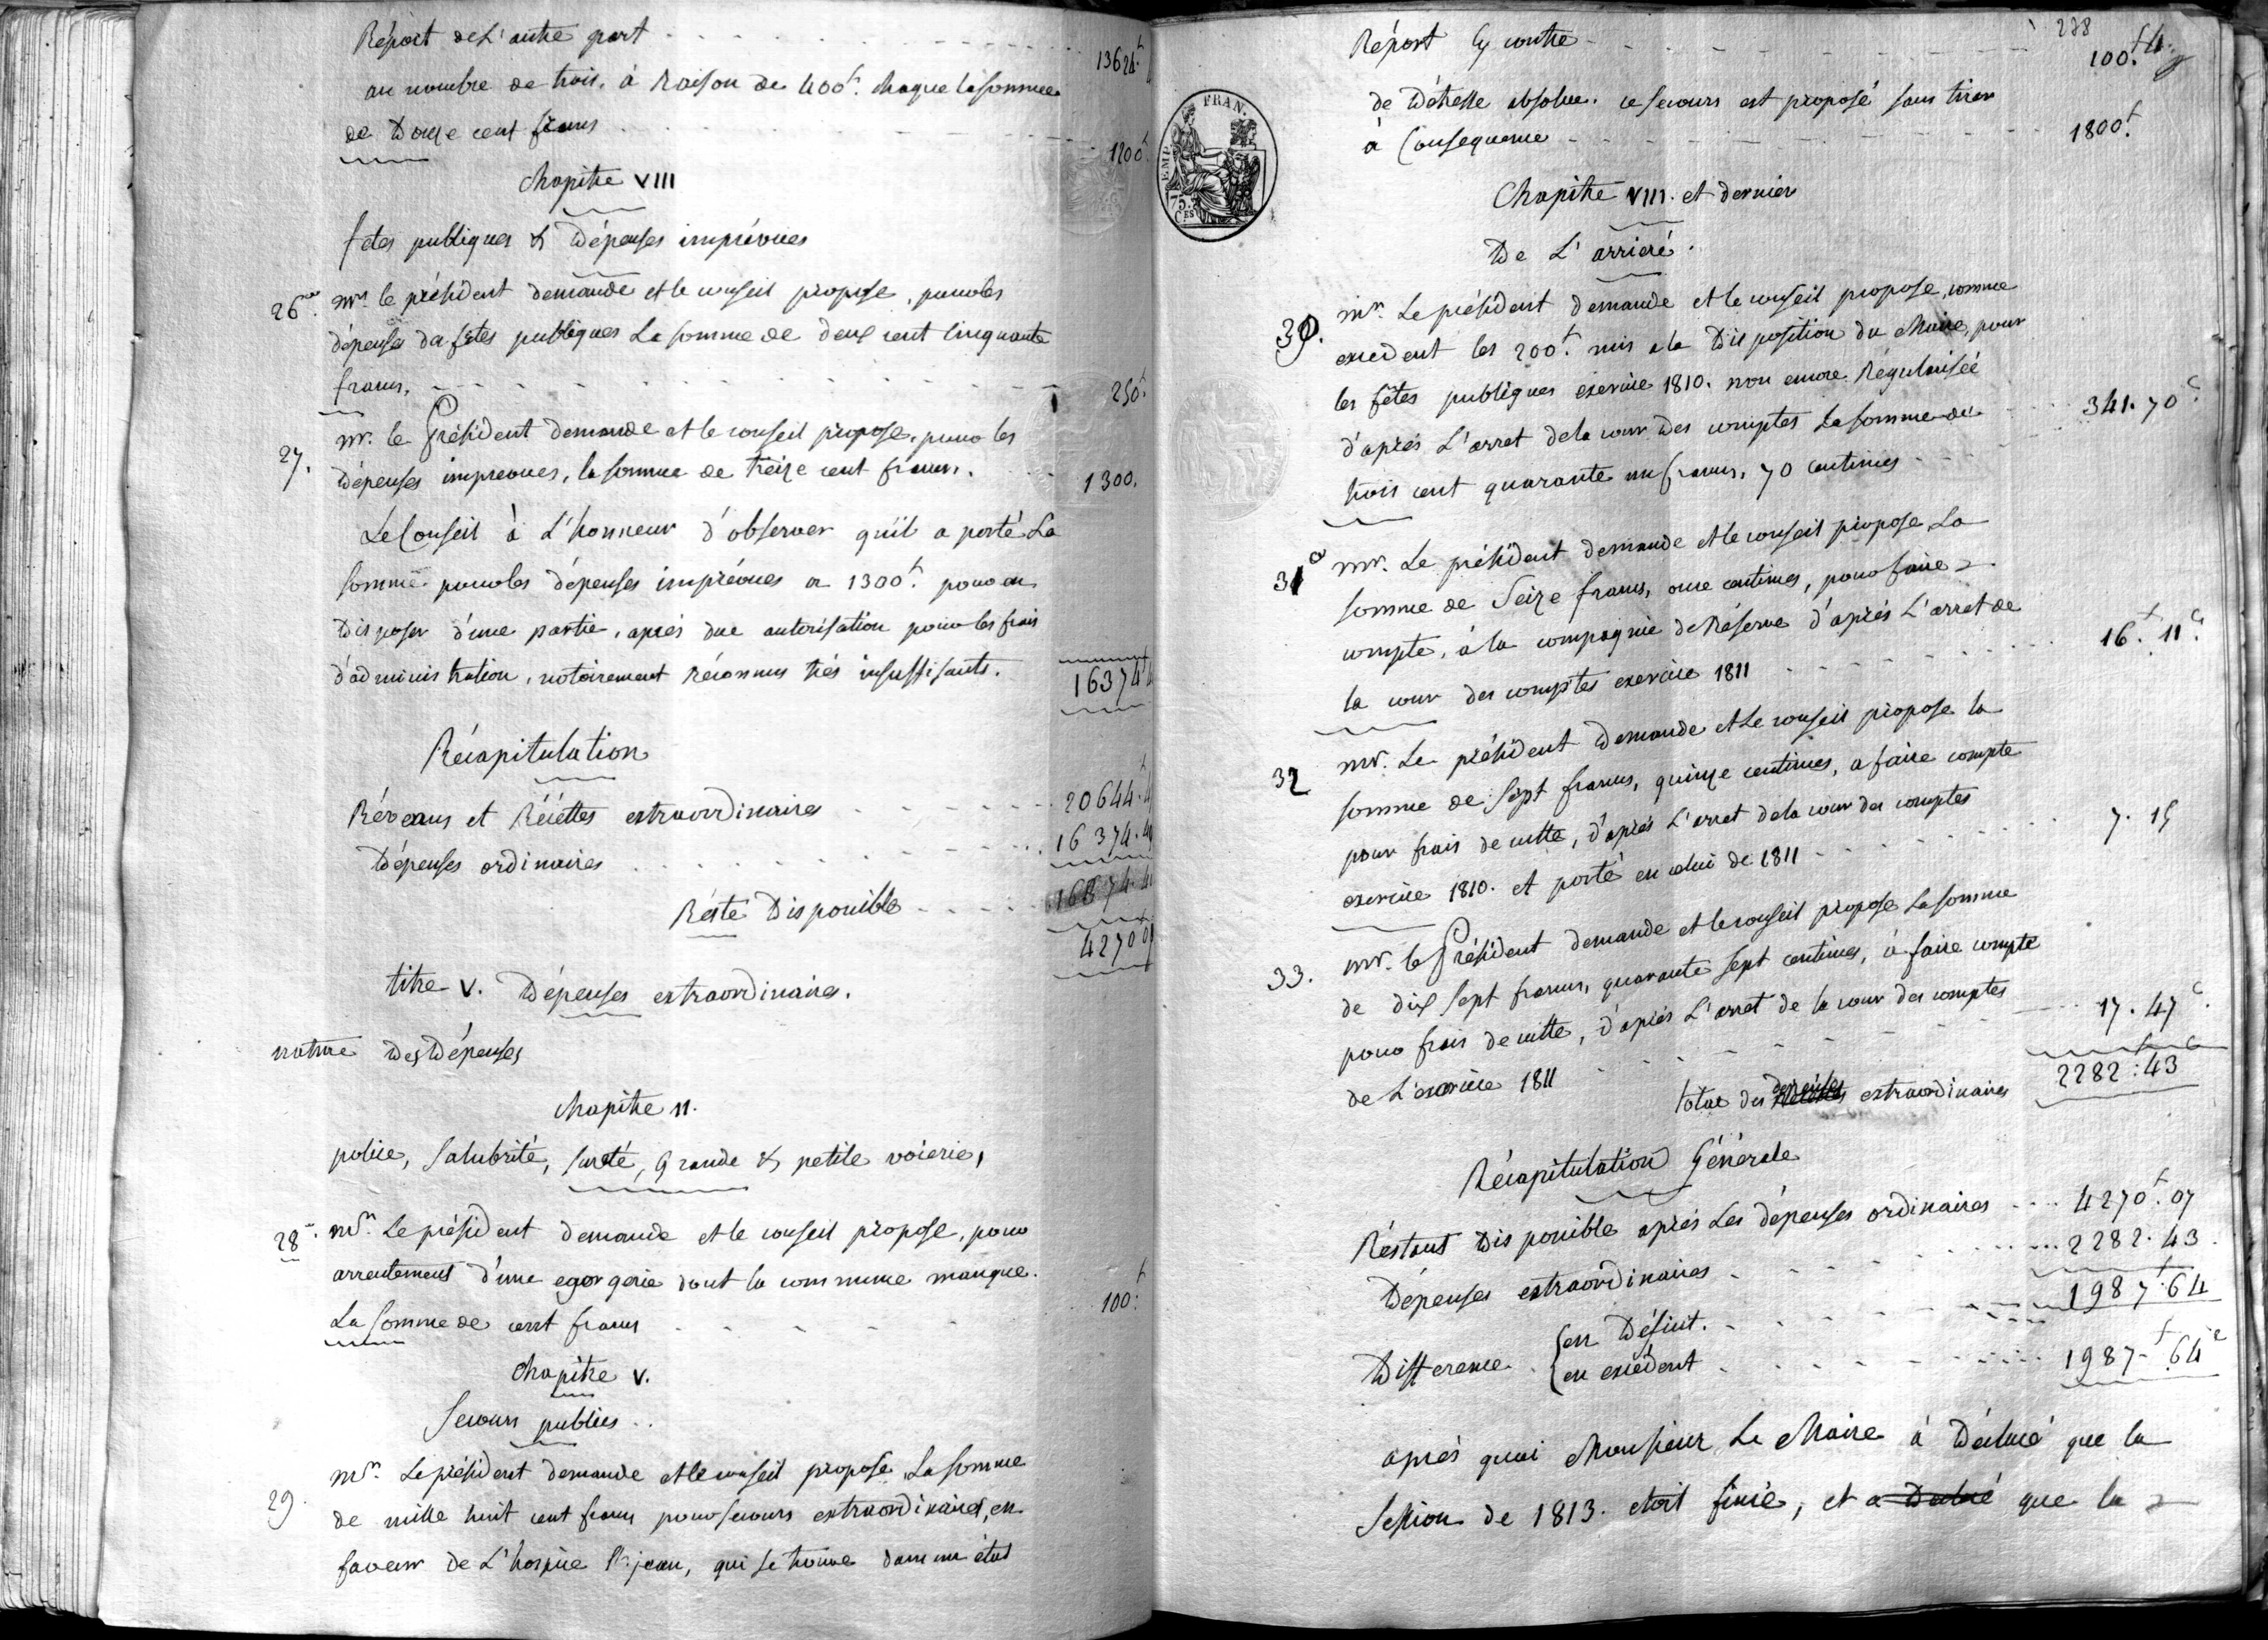 Réport de L'autre part 13624.f
au nombre de trois, à Raison de 400f. chaque la somme
de Douze cent francs 1200f.
chapitre VIII
fetes publiques & Dépenses imprévues
26. Mr. le président demande et le conseil propose, pour les
dépenses des fêtes publiques La somme de deux cent cinquante
francs. 250f.
27. Mr. le Président demande et le conseil propose, pour les
Dépenses imprevues, la somme de treize cent francs. 1300.
Le Conseil à L'honneur d'observer qu'il a porté La
somme pour les dépenses imprévues a 1300f. pour en
Disposer d'une partie, après due autorisation pour les frais
d'administration, notoirement réconnus très insuffisants.
16374 4
Récapitulation
Révenus et Récéttes extraordinaires 20644.f 4
Dépenses ordinaires 16374.4
16374.4
Résté Disponible
4270f 07
titre V. Dépenses extraordinaires.
nature Des Dépenses
chapitre 11.
police, Salubrité, sureté, Grande & petite voierie,
28. Mr. Le président demande et le conseil propose, pour
arrentement d'une egorgerie dont la commune manque.
La Somme de cent francs 100:f
Chapitre V.
Secours publics..
29. Mr. Le président demande et le conseil propose, La somme
de mille huit cent francs pour secours extraordinaires, en
faveur de L'hospice St. jean, qui se trouve dans un état
238
Réport Cy contre 100.f
de Détresse absolue. ce secours est proposé sans tirer
à Consequence 1800f.
Chapitre VIII. et dernier
De L'arriéré.
30. Mr. Le président demande et le conseil propose, comme
excedent les 200f. mis a la Disposition du Maire, pour
les fêtes publiques exercice 1810. non encore Régularisée
d'après L'arret de la cour Des comptes La somme de
trois cent quarante un francs, 70 centimes 341.70c
31. Mr. Le président demande et le conseil propose, La
somme de Seize francs, onze centimes, pour faire
compte, à la compagnie de Réserve d'après L'arret de
la cour des comptes exercice 1811 16.f 11.c
32 Mr. Le président Demande et Le conseil propose la
somme de Sept francs, quinze centimes, a faire compte
pour frais de cutte, d'après L'arret de la cour des comptes
exercice 1810. et porté en celui de 1811 7.15
33. Mr. le Président demande et le conseil propose La somme
de dix sept francs, quarante sept centimes, à faire compte
pour frais de cutte, d'après L'arret de la cour des comptes
de L'exercice 1811 17.47c.
total des dépenses extraordinaires 2282:43
Récapitulation Générale
Réstant Disponible après Les dépenses ordinaires 4270f.07
Dépenses extraordinaires 2282.43.
1987f.64
Différence. en Déficit.
en excédent 1987f.64c
après quoi Monsieur Le Maire à Déclaré que la
Session de 1813. etoit finie, et a Déclaré que la